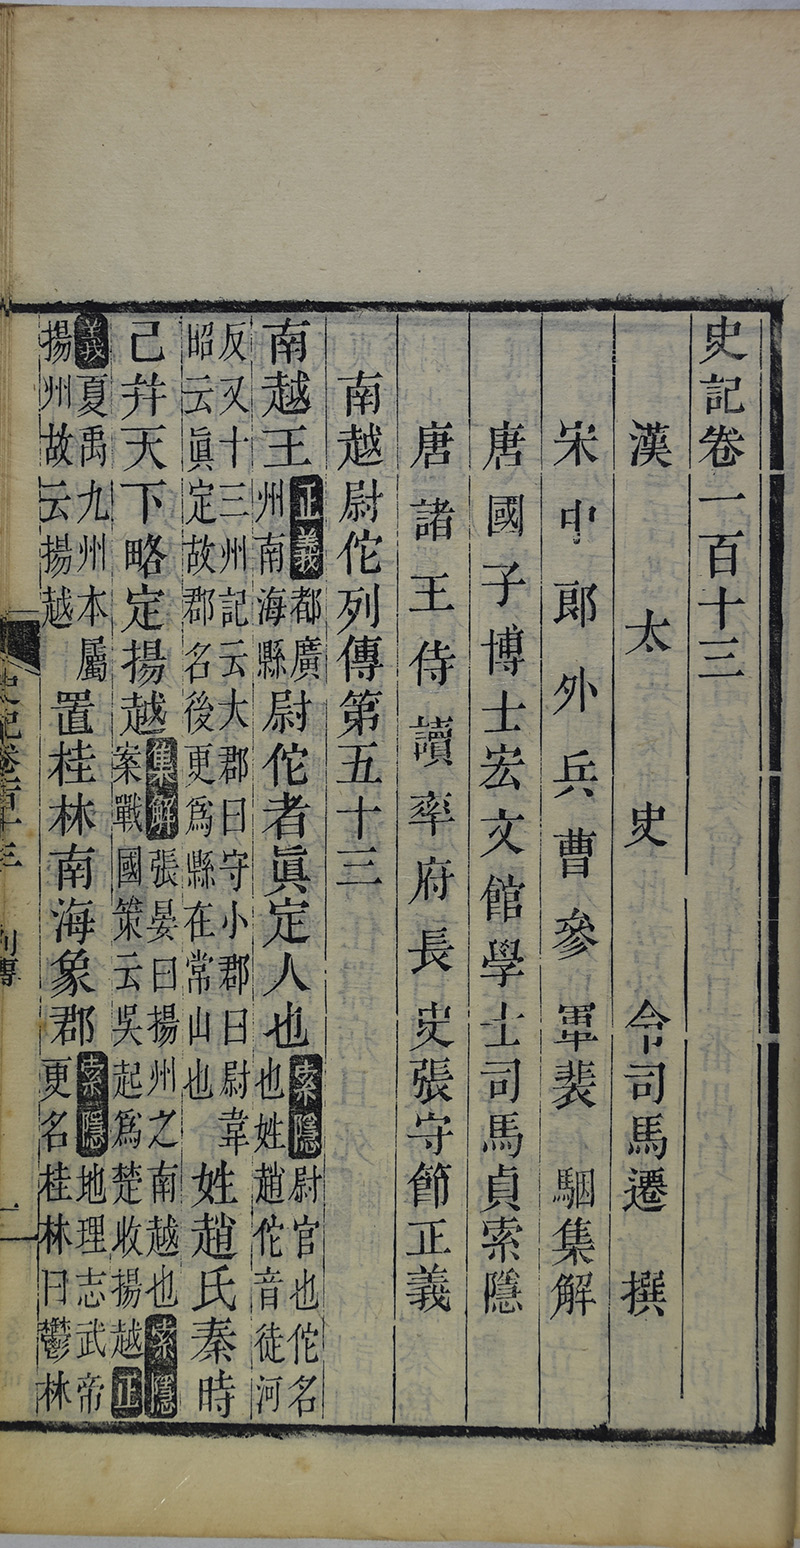 史記卷一百十三
漢太史令司馬遷撰
宋中郎外兵曹參軍裴駰集解
唐國子博士宏文館學士司馬貞索隱
唐諸王侍讀率府長史張守節正義
南越尉佗列傳第五十三
南越王正義都廣州南海縣尉佗者眞定人也索隱尉官也佗名也姓趙佗音徒河
反又十三州記云大郡曰守小郡曰尉韋昭云眞定故郡名後更爲縣在常山也姓趙氏秦時
已幷天下略定揚越集解張晏曰揚州之南越也索隱案戰國策云吳起爲楚收揚越正
義夏禹九州本屬揚州故云揚越置桂林南海象郡索隱地理志武帝更名桂林曰鬱林
史記卷一百十三 列傳 一